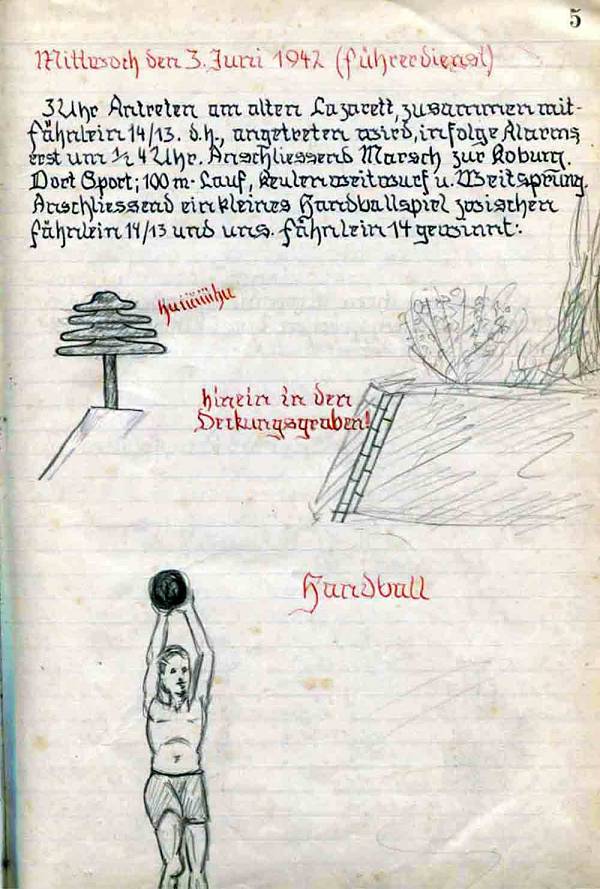 5
Mittwoch den 3. Juni 1942 (Führerdienst)
3 Uhr Antreten am alten Lazarett, zusammen mit-
Fähnlein 14/13. d.h., angetreten wird, infolge Alarms,
erst um ½ 4 Uhr. Anschliessend Marsch zur Koburg.
Dort Sport; 100 m-Lauf, Keulenweitwurf u. Weitsprung.
Anschliessend ein kleines Handballspiel zwischen
Fähnlein 14/13 und uns. Fähnlein 14 gewinnt.
hinein in den
Deckungsgraben!
Handball